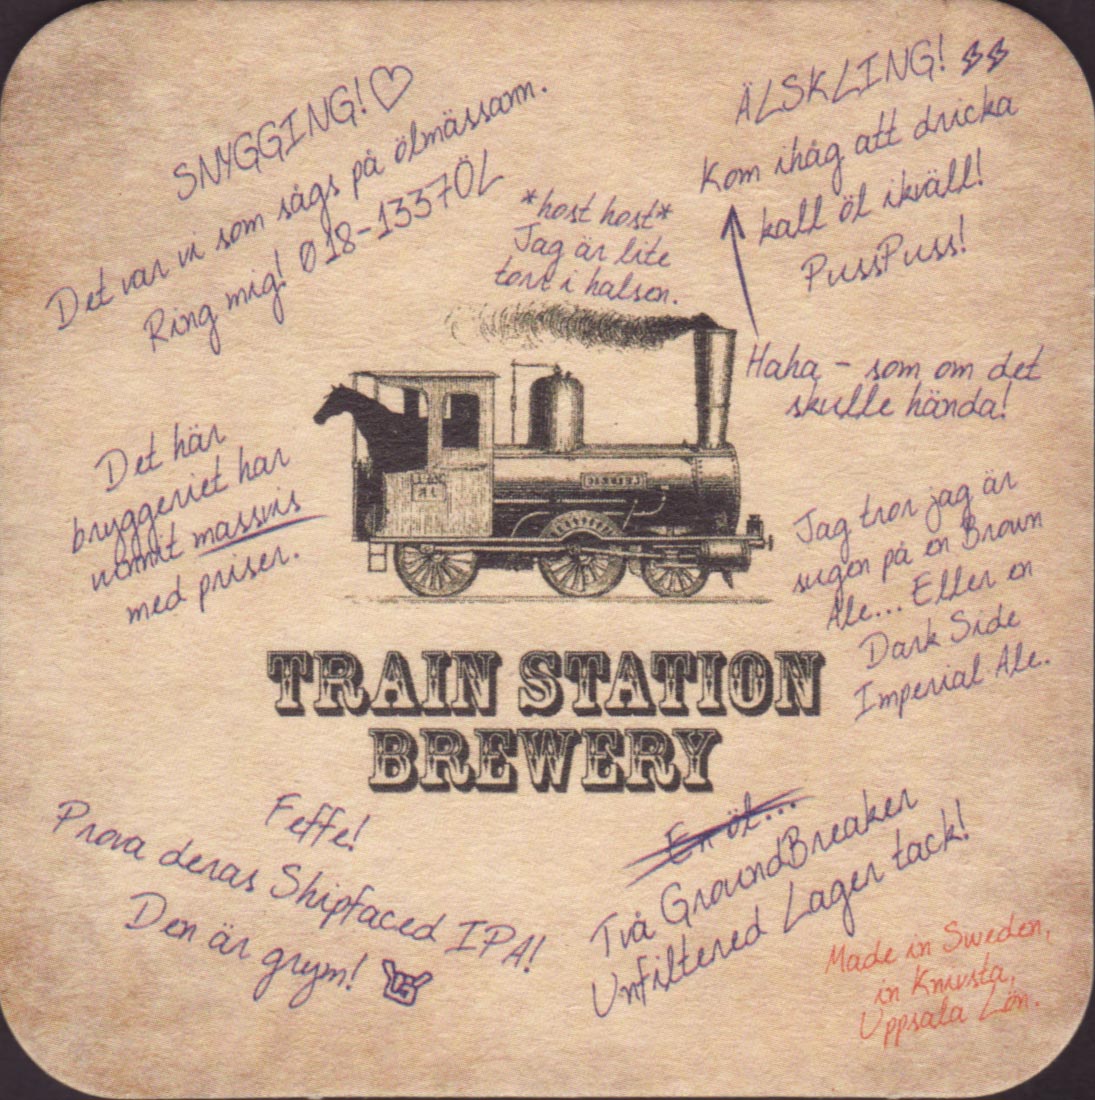 SNYGGING! ♡
Det var vi som sågs på ölmässann.
Ring mig! 018-1337ÖL
ÄLSKLING!
Kom ihåg att dricka
kall öl ikväll!
PussPuss!
*host host*
Jag är lite
torr i halsen.
Haha - som om det
skulle hända!
Det här
bryggeriet har
vunnit massvis
med priser.
Jag tror jag är
sugen på en Brown
Ale... Eller en
Dark Side
Imperial Ale.
TRAIN STATION
BREWERY
Feffe!
Prova deras Shipfaced IPA!
Den är grym!
En öl...
Två GroundBreaker
Unfiltered Lager tack!
Made in Sweden,
in Knivsta,
Uppsala Län.